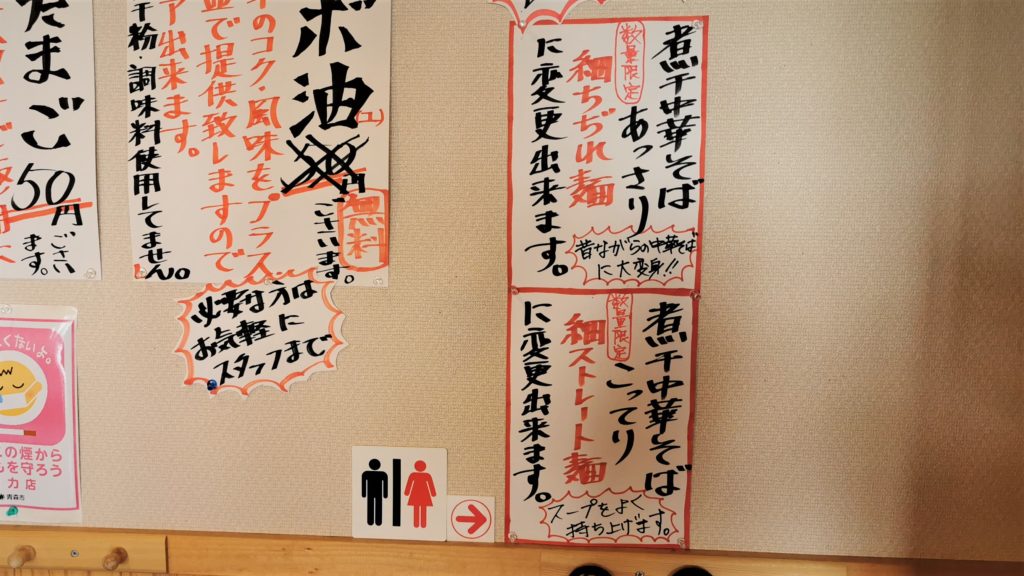 煮干中華そば
あっさり
数量限定
細ちぢれ麺
に変更出来ます。
昔ながらの中華そば
に大変身!!
煮干中華そば
こってり
数量限定
細ストレート麺
に変更出来ます。
スープをよく
持ち上げます。
ボ油
円
ございます。
無料
のコク・風味をプラス
で提供致しますので
ア出来ます。
干粉・調味料使用してません。
必要な方は
お気軽に
スタッフまで
たまご50円ござい
ます。
くないよ。
の煙から
を守ろう
力店
青森市